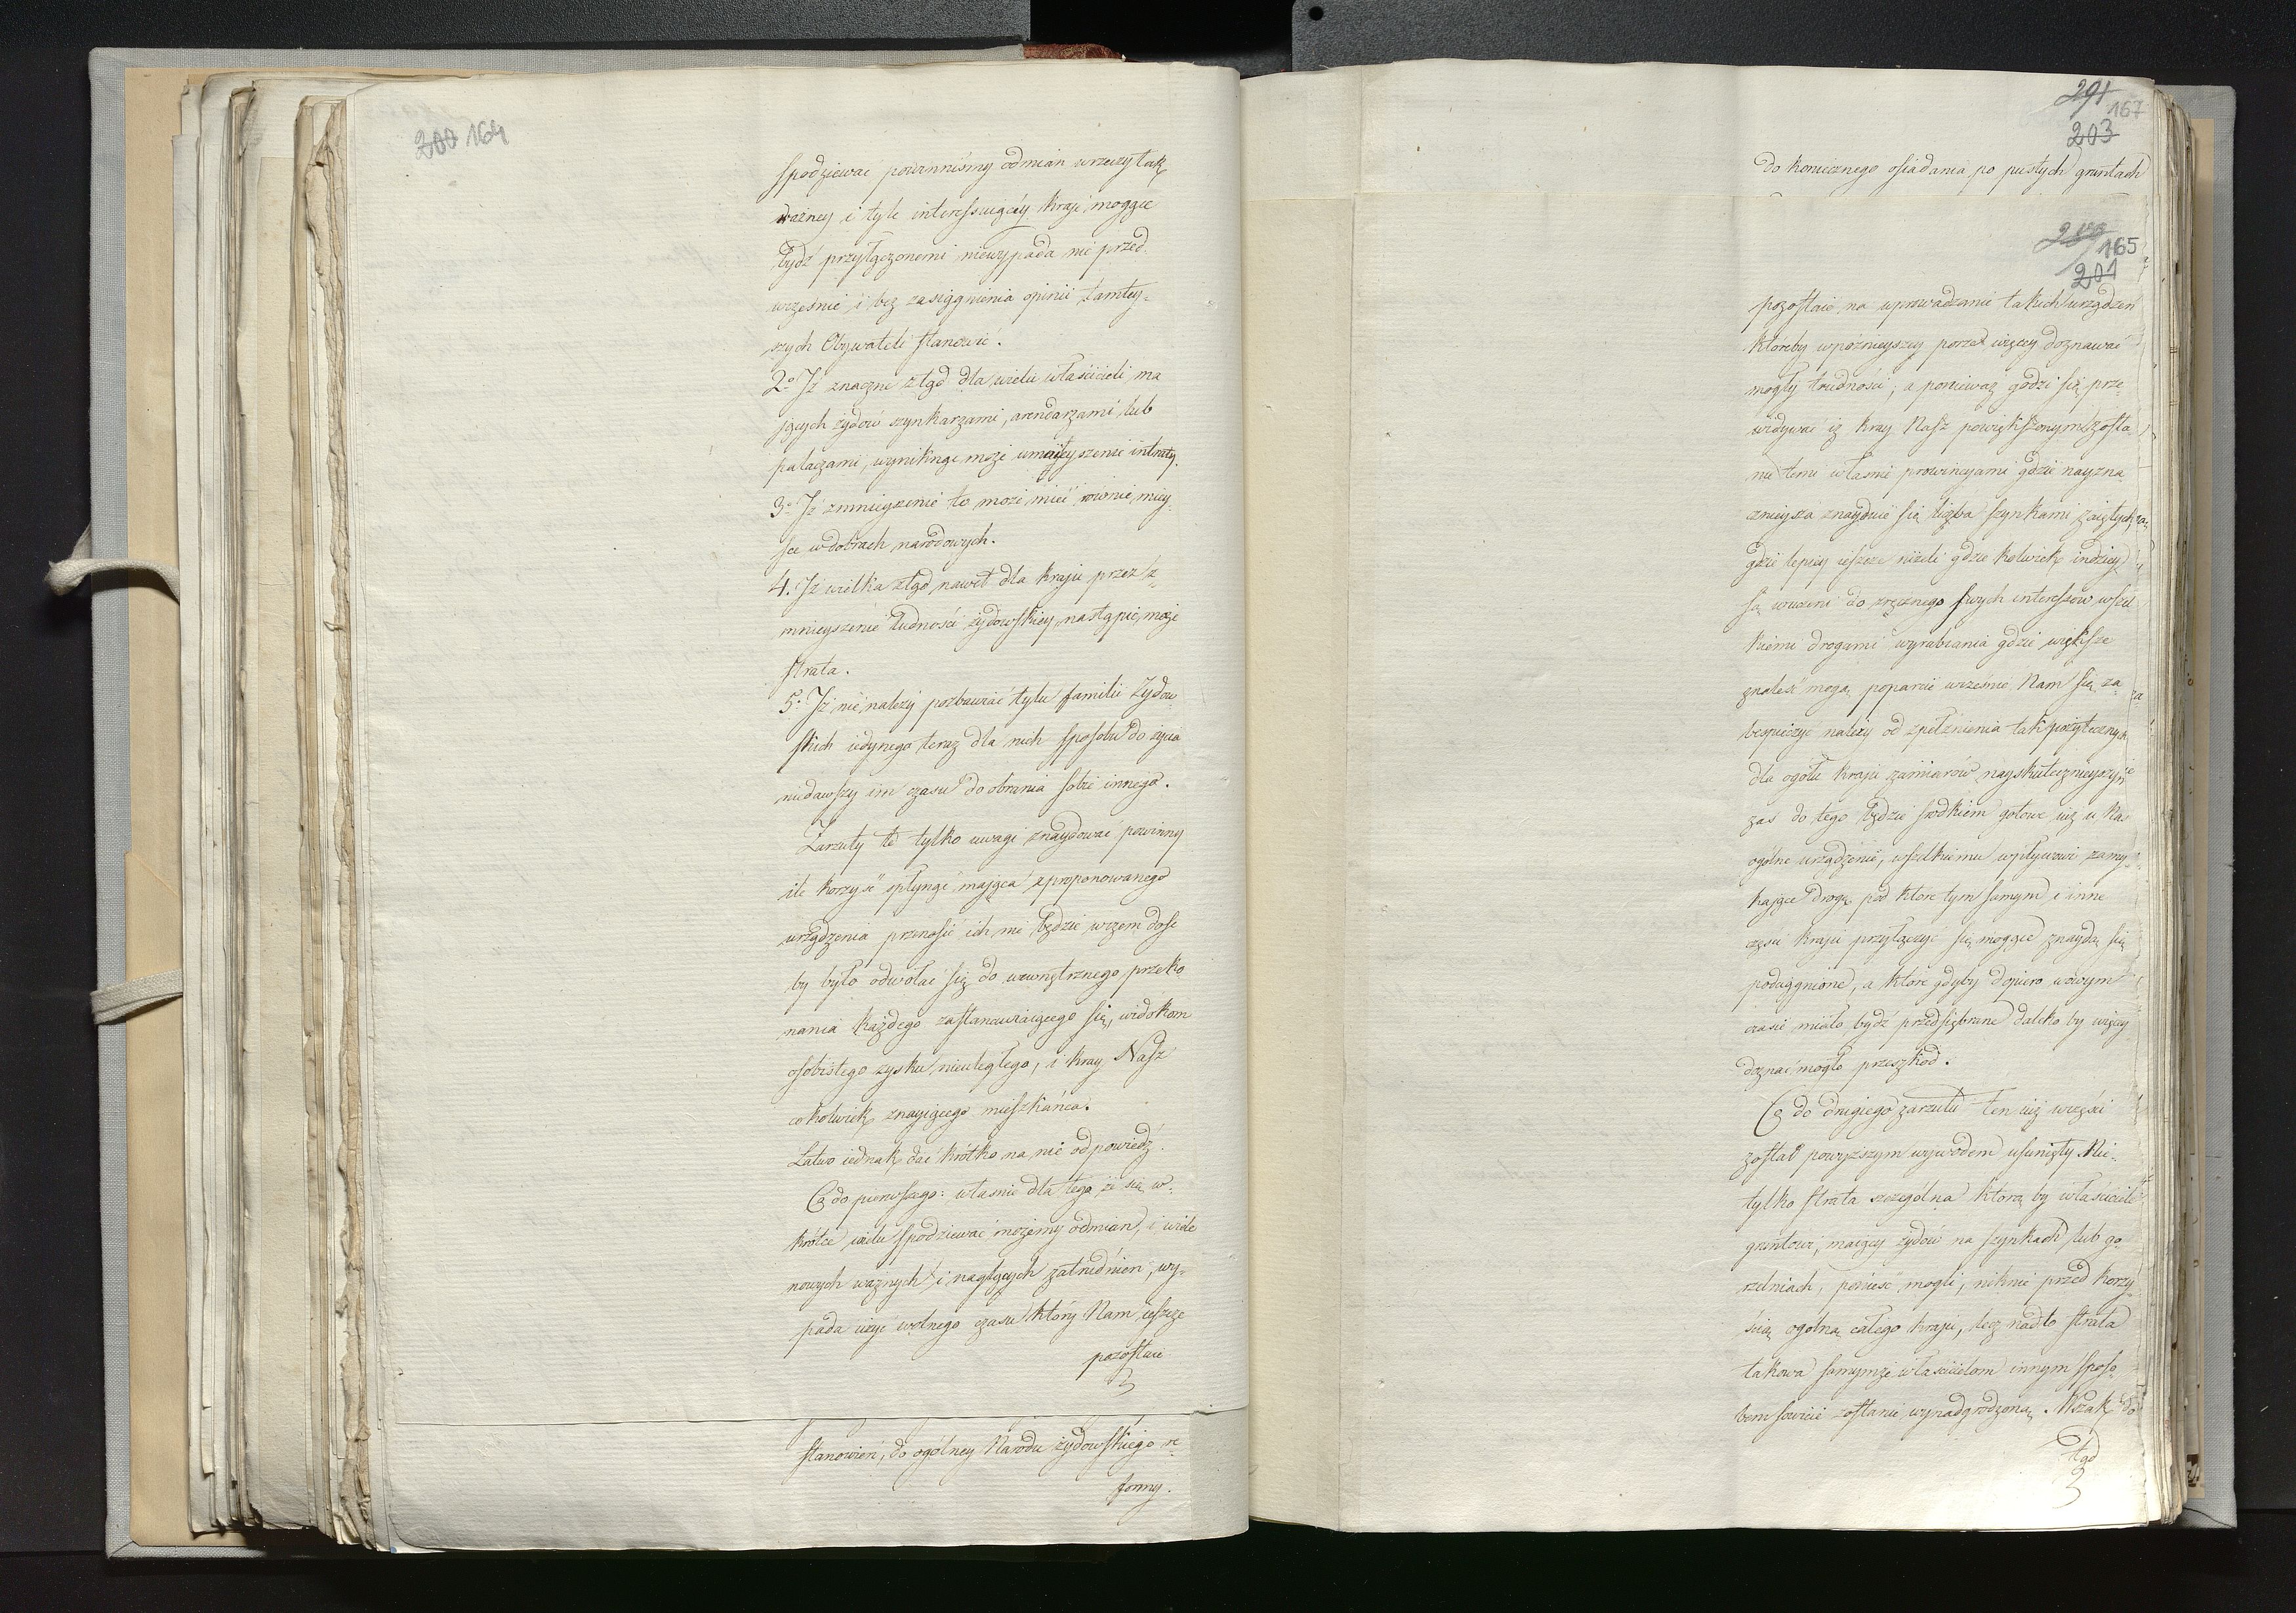 200 164
spodziewać powinniśmy odmian w rzeczy tak
ważney i tyle interessuiącéy kraje moggce
bydź przyłączonemi niewypada nic przed
wcześnie i bez zasiągnienia opinii tamtey-
szych Obywateli stanowić.
2o Iż znaczne ztąd dla wielu właścicieli ma
jących żydów szynkarzami, arendarzami lub
palaczami, wyniknąć może umnieyszenie intraty.
3o Iż zmnieyszenie to może mieć równie miey-
sce w dobrach narodowych.
4. Iż wielka ztąd nawet dla kraju przez z-
mnieyszenie ludności żydowskiey, nastąpić może
strata.
5o Iż nie należy pozbawiać tylu familii Żydow-
skich iedynego teraz dla nich sposobu do życia
niedawszy im czasu do obrania sobie innego.
Zarzuty te tylko uwagi znaydować powinny
ile korzyść spłynąć mająca z proponowanego
urządzenia przenosić ich nie będzie w czem dosć
by było odwołać się do wewnętrznego przeko
nania każdego zastanawiaiącego się, widokom
osobistego zysku nieuległego, i kray Nasz
cokolwiek znayiącego mieszkańca.
Łatwo iednak dać krótko na nie odpowiedź.
Co do pierwszego: własnie dla tego że się w-
krótce wielu spodziewać możemy odmian, i wiele
nowych ważnych i nagłących zatrudnien, wy-
pada użyć wolnego czasu który Nam ieszcze
pozostaie
stanowień, do ogólney Narodu żydowskiego re-
formy.
291 167
203
do koniecznego osiadania po pustych gruntach
200 165
201
pozostaie na wprowadzanie takich urządzeń
któreby w poźnieyszey porze więcey doznawać
mogły trudności; a ponieważ godzi się prze
widywać iż kray Nasz powiększonym zosta-
nie temi własnie prowincyami gdzie nayzna
cznieysza znayduie się liczba szynkami zaiętych
gdzie lepiey ieszcze niżeli gdzie kolwiek indziey
są wuczeni do zręcznego swych interessów wszel
kiemi drogami wyrabiania gdzie większe
znaleść mogą poparcie wcześnie Nam się za-
bespieczyć należy od spełznienia tak pożytecznych
dla ogółu kraju zamiarów nayskutecznieyszym
zaś do tego będzie srodkiem gotowe iuż u Nas
ogólne urządzenie, wszelkiemu wpływowi zamy-
kające drogę pod które tym samym i inne
części kraju przyłączyć się moggce znaydą się
podciągnione, a które gdyby dopiero w owym
czasie miało bydź przedsiębrane daleko by więcey
doznać mogło przeszkod.
Co do drugiego zarzutu ten iuż w części
został powyższym wywodem usunięty. Nie-
tylko strata szczególna którą by właściciele
gruntowi, maiący żydów na szynkach lub go
rzelniach, ponieść mogli, niknie przed korzy
ścią ogólną całego kraju, lecz nadto strata
takowa samymże właścicielom innym sposo-
bem sowicie zostanie wynadgrodzoną. Wszak do
tąd